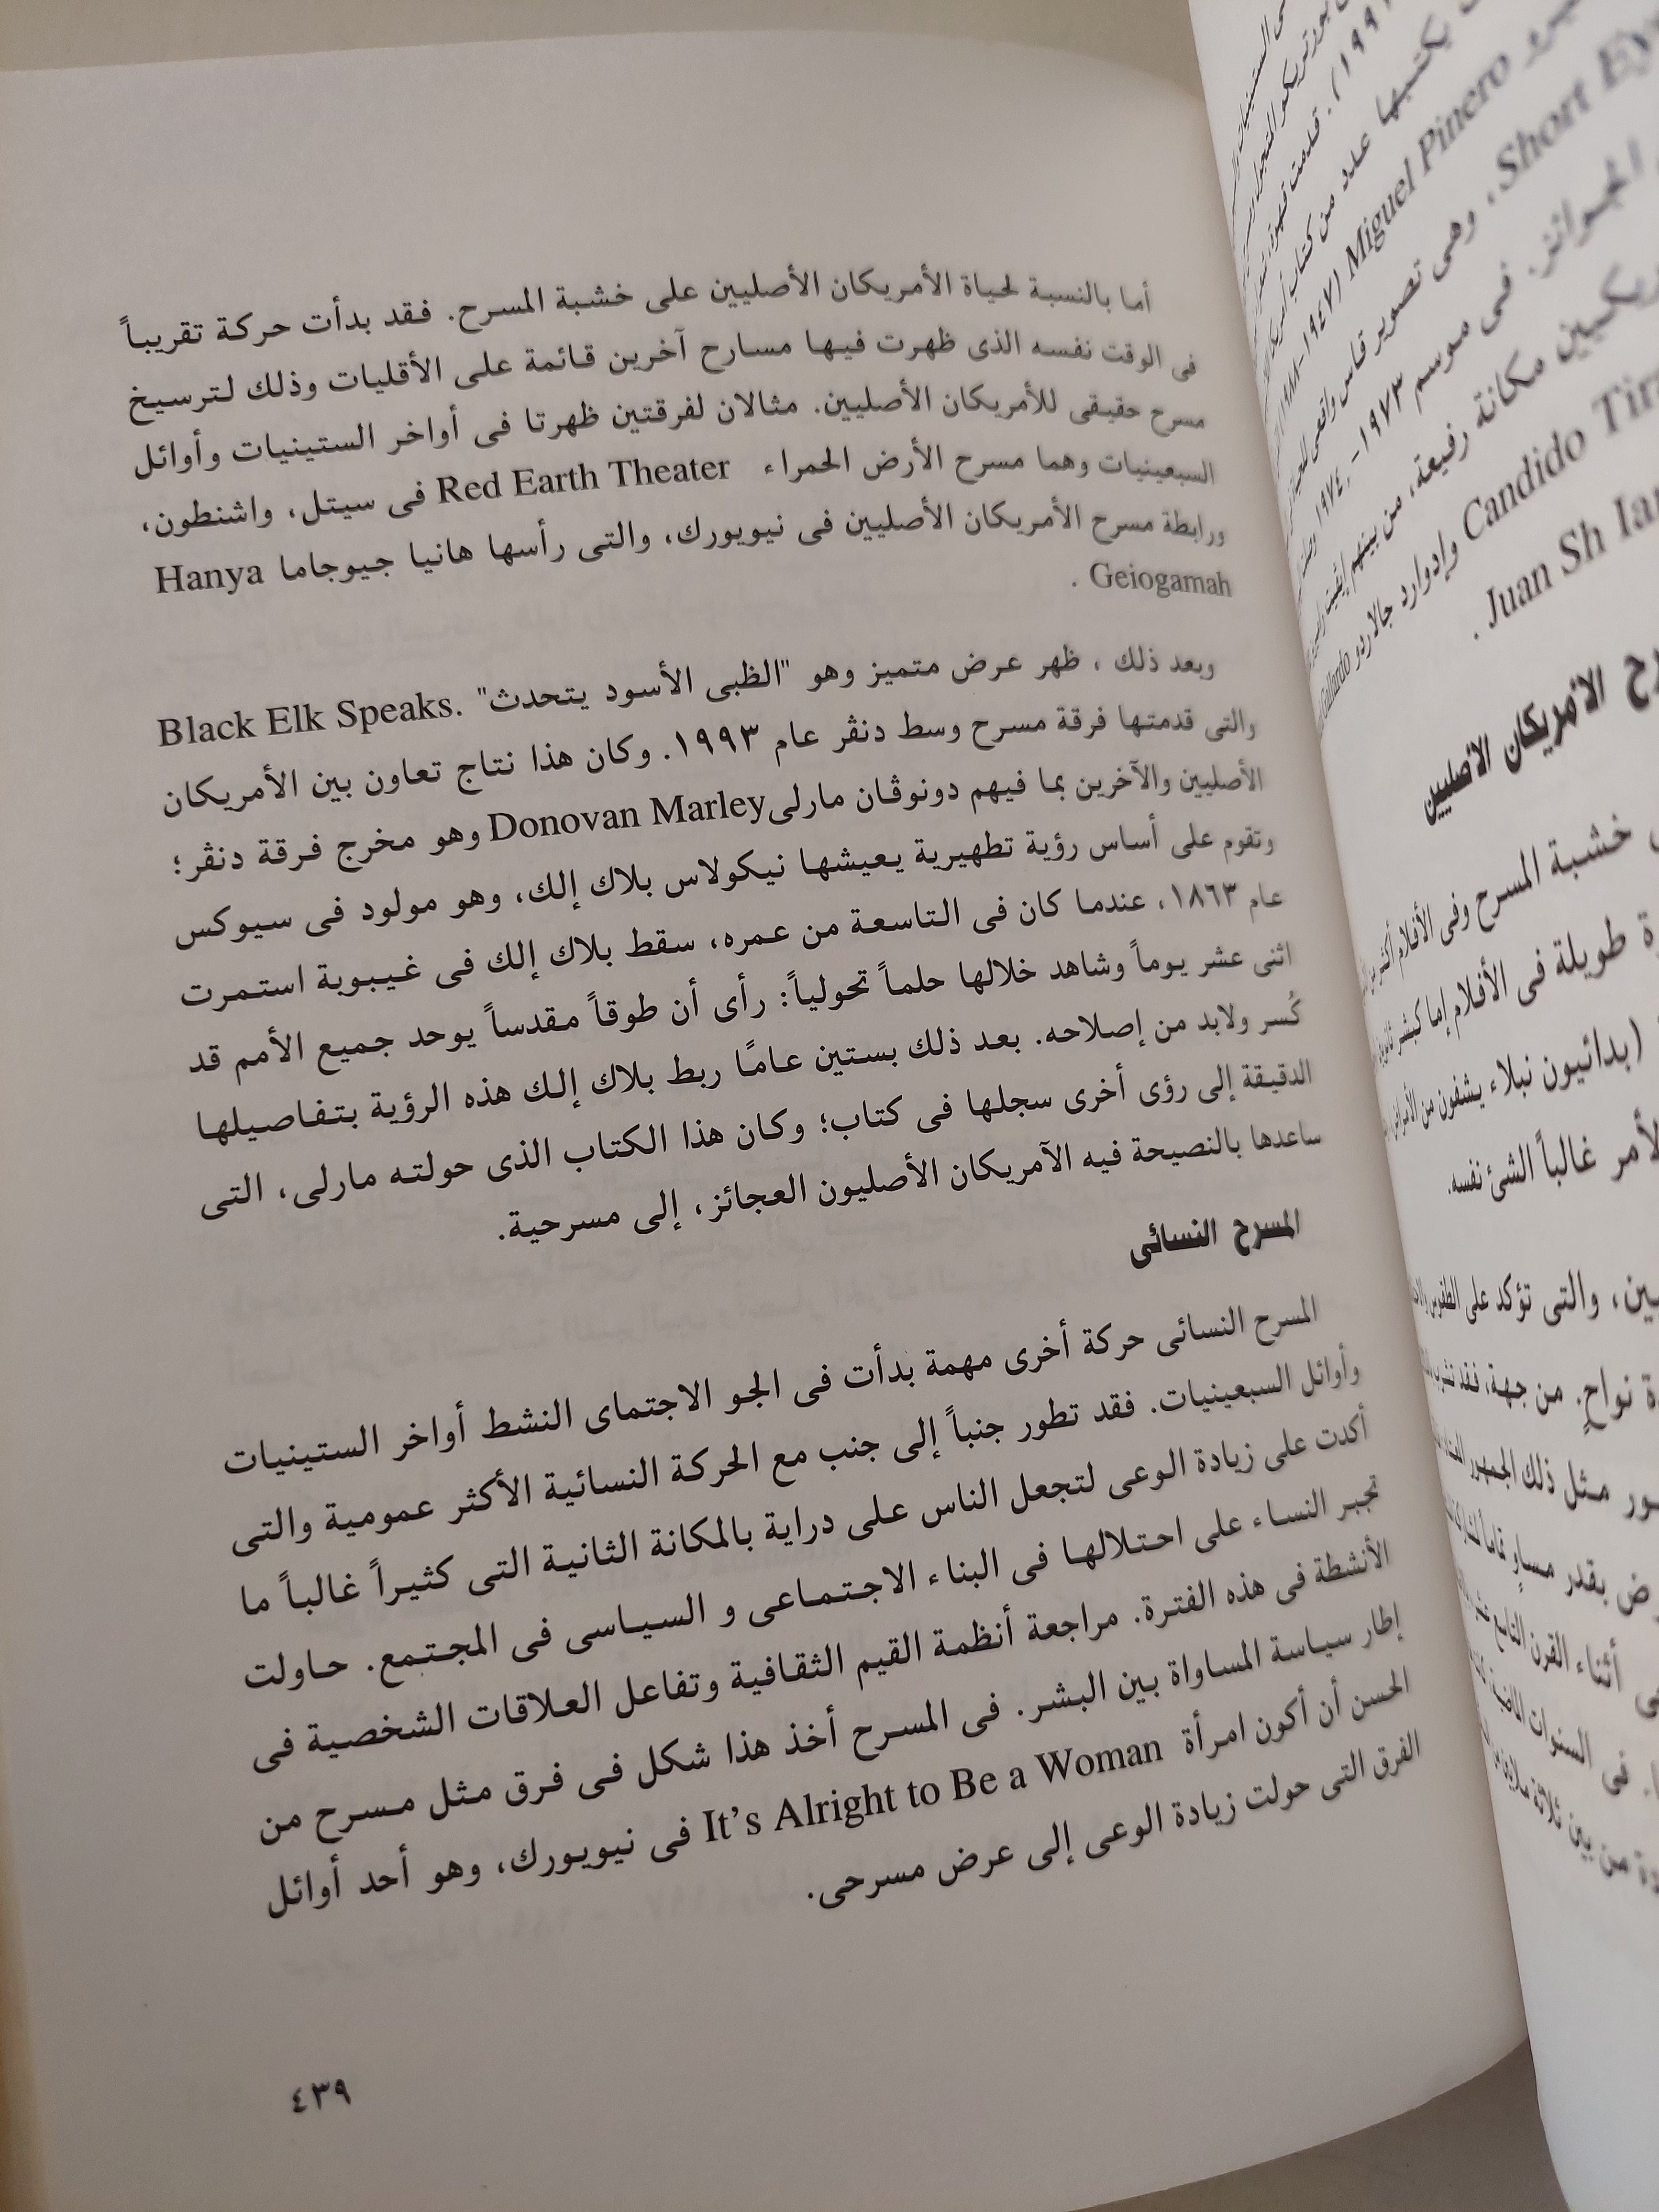 أما بالنسبة لحياة الأمريكان الأصليين على خشبة المسرح. فقد بدأت حركة تقريباً
فى الوقت نفسه الذى ظهرت فيها مسارح آخرين قائمة على الأقليات وذلك لترسيخ
مسرح حقيقى للأمريكان الأصليين. مثالان لفرقتين ظهرتا فى أواخر الستينيات وأوائل
السبعينيات وهما مسرح الأرض الحمراء Red Earth Theater فى سيتل، واشنطون،
ورابطة مسرح الأمريكان الأصليين فى نيويورك، والتى رأسها هانيا جيوجاما Hanya
Geiogamah .
وبعد ذلك ، ظهر عرض متميز وهو "الظبى الأسود يتحدث" .Black Elk Speaks
والتى قدمتها فرقة مسرح وسط دنڤر عام ١٩٩٣. وكان هذا نتاج تعاون بين الأمريكان
الأصليين والآخرين بما فيهم دونوڤان مارلى Donovan Marley وهو مخرج فرقة دنڤر؛
وتقوم على أساس رؤية تطهيرية يعيشها نيكولاس بلاك إلك، وهو مولود فى سيوكس
عام ١٨٦٣، عندما كان فى التاسعة من عمره، سقط بلاك إلك فى غيبوبة استمرت
اثنى عشر يوماً وشاهد خلالها حلماً تحولياً: رأى أن طوقاً مقدساً يوحد جميع الأمم قد
كُسر ولابد من إصلاحه. بعد ذلك بستين عامًا ربط بلاك إلك هذه الرؤية بتفاصيلها
الدقيقة إلى رؤى أخرى سجلها فى كتاب؛ وكان هذا الكتاب الذى حولته مارلى، التى
ساعدها بالنصيحة فيه الآمريكان الأصليون العجائز، إلى مسرحية.
المسرح النسائى
المسرح النسائى حركة أخرى مهمة بدأت فى الجو الاجتماى النشط أواخر الستينيات
وأوائل السبعينيات. فقد تطور جنباً إلى جنب مع الحركة النسائية الأكثر عمومية والتى
أكدت على زيادة الوعى لتجعل الناس على دراية بالمكانة الثانية التى كثيراً غالباً ما
تجبر النساء على احتلالها فى البناء الاجتماعى و السياسى فى المجتمع. حاولت
الأنشطة فى هذه الفترة. مراجعة أنظمة القيم الثقافية وتفاعل العلاقات الشخصية فى
إطار سياسة المساواة بين البشر. فى المسرح أخذ هذا شكل فى فرق مثل مسرح من
الحسن أن أكون امرأة It's Alright to Be a Woman فى نيويورك، وهو أحد أوائل
الفرق التى حولت زيادة الوعى إلى عرض مسرحى.
٤٣٩
يكتبها عدد من كتاب
Miguel Pinero (١٩٤٧-١٩٨٨)
Short، وهى تصوير قاس واقعى
الجوائز. فى موسم ١٩٧٣-١٩٧٤
مكانة رفيعة، من بينهم
Candido وإدوارد جالاردو Gallardo
Juan Sh .
الأمريكان الأصليين
خشبة المسرح وفى الأفلام أكثر من
طويلة فى الأفلام إما كبشر
(بدائيون نبلاء يشفون من الأمراض
غالباً الشئ نفسه.
والتى تؤكد على الطقوس
نواحٍ. من جهة، فقد
مثل ذلك الجمهور
بقدر مساوٍ تماماً
أثناء القرن التاسع عشر
فى السنوات الماضية
من بين ثلاثة